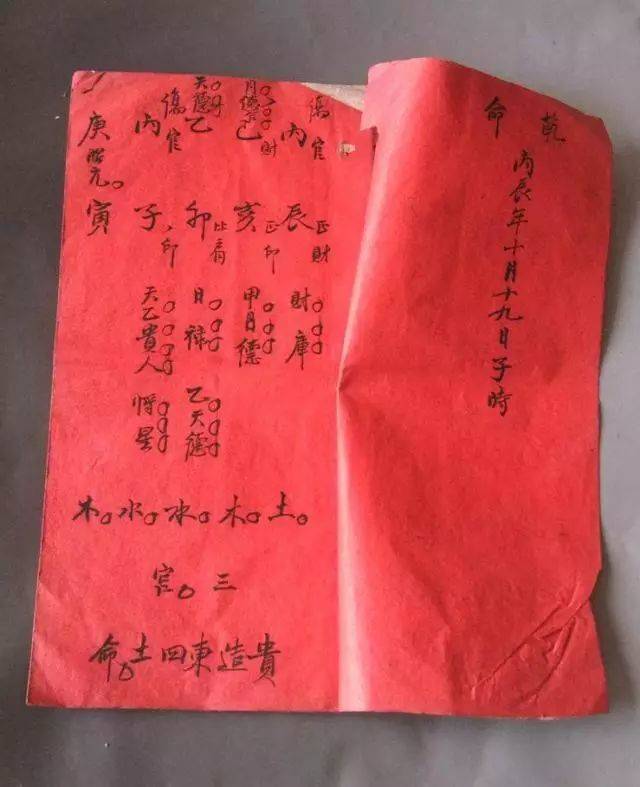 乾命
丙辰年十月十九日子時
傷官
丙辰
正財
財庫
月德
財
己亥
正印
甲月德
天德
乙卯
比肩
日祿
乙天德
傷官
丙子
印
天乙貴人
將星
庚寅
胎元。
土。木。水。水。木。
三。宮
貴造東四土命。